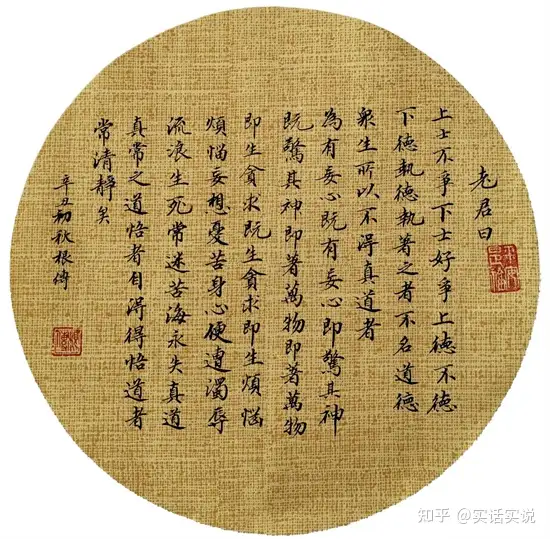 老君曰
上士不争下士好争上德不德
下德執德執著之者不名道德
衆生所以不得真道者
為有妄心既有妄心即驚其神
既驚其神即著萬物即著萬物
即生貪求既生貪求即生煩惱
煩惱妄想憂苦身心便遭濁辱
流浪生死常迷苦海永失真道
真常之道悟者自得得悟道者
常清靜矣
辛丑初秋根倚
知乎 @实话实说